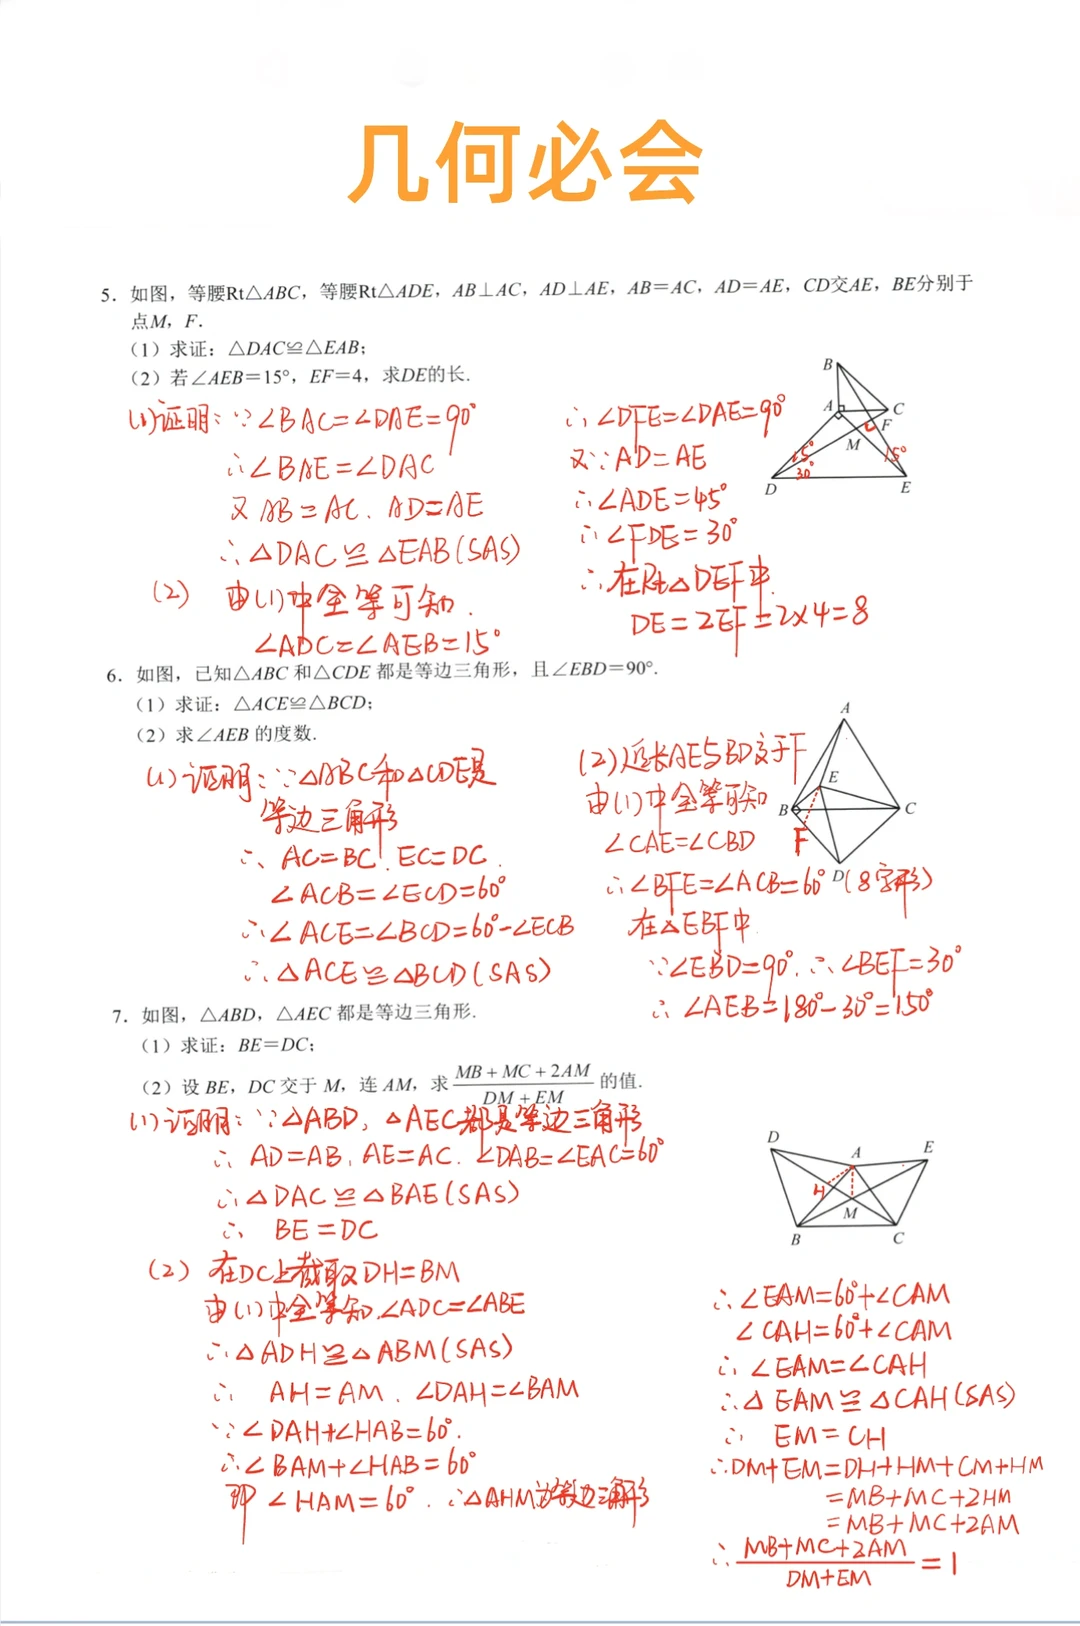 几何必会
5. 如图，等腰Rt△ABC，等腰Rt△ADE，AB⊥AC，AD⊥AE，AB＝AC，AD＝AE，CD交AE，BE分别于
点M，F．
（1）求证：△DAC≌△EAB；
（2）若∠AEB＝15°，EF＝4，求DE的长．
(1)证明：∵∠BAC=∠DAE=90°
∴∠BAE=∠DAC
又 AB=AC、AD=AE
∴△DAC≌△EAB(SAS)
(2) 由(1)中全等可知．
∠ADC=∠AEB=15°
∴∠DFE=∠DAE=90°
又∵AD=AE
∴∠ADE=45°
∴∠FDE=30°
∴在Rt△DEF中．
DE=2EF=2×4=8
B
A
C
F
M
15°
15°
30°
D
E
6. 如图，已知△ABC 和△CDE 都是等边三角形，且∠EBD＝90°．
（1）求证：△ACE≌△BCD；
（2）求∠AEB 的度数．
(1)证明：∵△ABC和△CDE是
等边三角形
∴ AC=BC，EC=DC．
∠ACB=∠ECD=60°
∴∠ACE=∠BCD=60°-∠ECB
∴△ACE≌△BCD(SAS)
(2)延长AE与BD交于F
由(1)中全等可知
∠CAE=∠CBD
∴∠BFE=∠ACB=60°(8字形)
在△EBF中
∵∠EBD=90°．∴∠BEF=30°
∴∠AEB=180°-30°=150°
A
E
B
C
F
D
7. 如图，△ABD，△AEC 都是等边三角形．
（1）求证：BE＝DC；
（2）设 BE，DC 交于 M，连 AM，求 (MB + MC + 2AM)/(DM + EM) 的值．
(1)证明：∵△ABD，△AEC都是等边三角形
∴ AD=AB，AE=AC．∠DAB=∠EAC=60°
∴△DAC≌△BAE(SAS)
∴ BE=DC
(2) 在DC上截取DH=BM
由(1)中全等知，∠ADC=∠ABE
∴△ADH≌△ABM(SAS)
∴ AH=AM．∠DAH=∠BAM
∵∠DAH+∠HAB=60°．
∴∠BAM+∠HAB=60°
即∠HAM=60°．∴△AHM为等边三角形
D
A
E
H
M
B
C
∴∠EAM=60°+∠CAM
∠CAH=60°+∠CAM
∴∠EAM=∠CAH
∴△EAM≌△CAH(SAS)
∴ EM=CH
∴DM+EM=DH+HM+CM+HM
=MB+MC+2HM
=MB+MC+2AM
∴ (MB+MC+2AM)/(DM+EM) =1